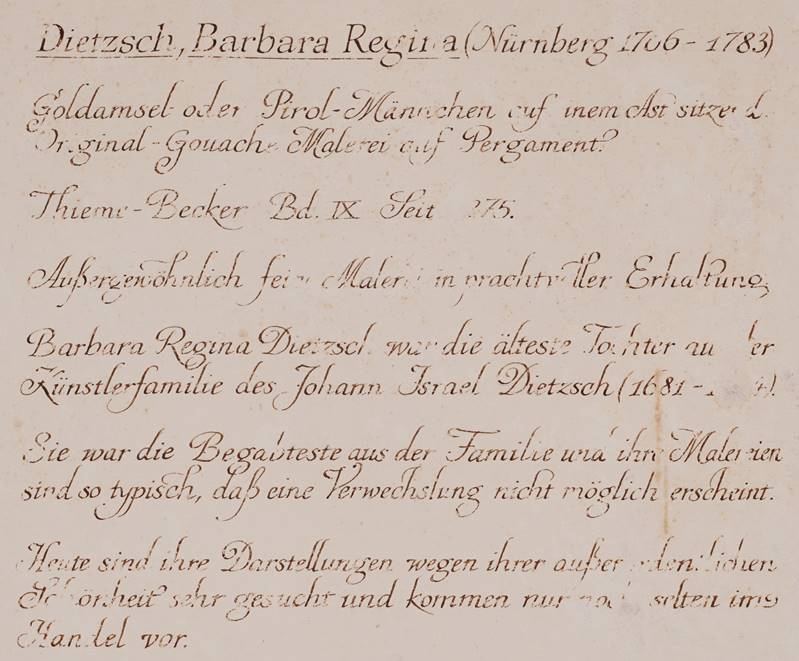 Dietzsch, Barbara Regina (Nürnberg 1706 - 1783)
Goldamsel oder Pirol-Männchen auf einem Ast sitzend.
Original-Gouache Malerei auf Pergament.
Thieme-Becker Bd. IX Seite 275.
Außergewöhnlich feine Malerei in prachtvoller Erhaltung.
Barbara Regina Dietzsch war die älteste Tochter aus der
Künstlerfamilie des Johann Israel Dietzsch (1681 -
Sie war die Begabteste aus der Familie und ihre Malereien
sind so typisch, daß eine Verwechslung nicht möglich erscheint.
Heute sind ihre Darstellungen wegen ihrer außerordentlichen
Schönheit sehr gesucht und kommen nur noch selten im
Handel vor.